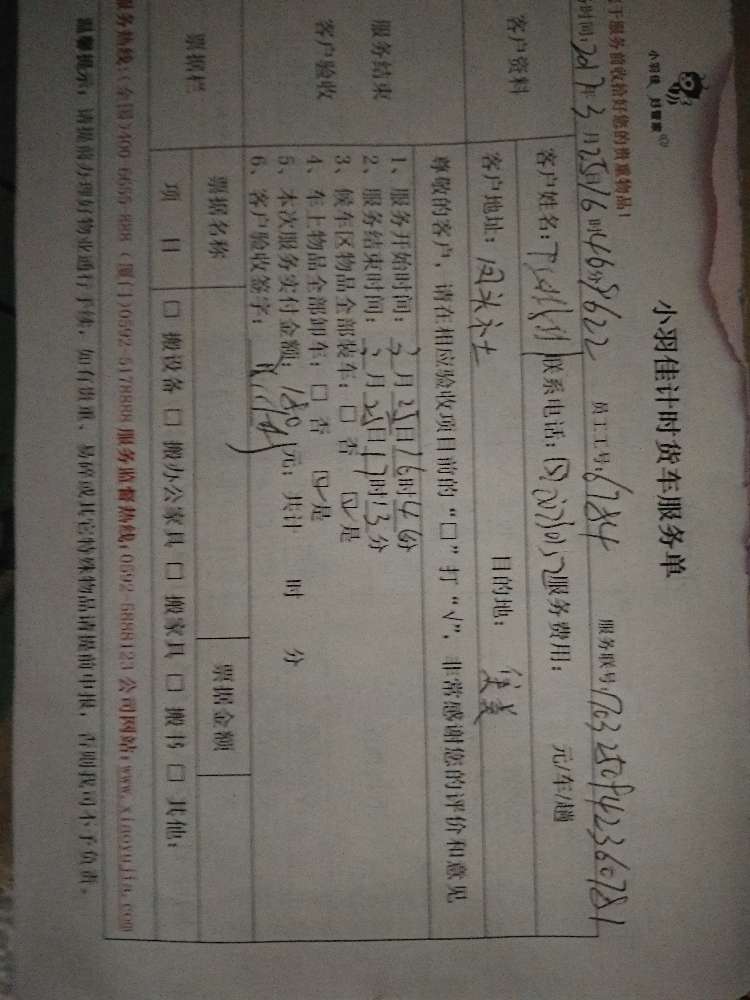 小羽佳 好管家
于服务前收拾好您的贵重物品!
小羽佳计时货车服务单
时间:2017年3月25日16时46分 员工工号:6784 服务联号:
客户资料
客户姓名: 联系电话: 服务费用: 元/车/趟
客户地址: 目的地:
服务结束
客户验收
尊敬的客户,请在相应验收项目前的“□”打“√”,非常感谢您的评价和意见
1、服务开始时间:3月25日16时46分
2、服务结束时间:3月25日17时13分
3、候车区物品全部装车:□ 否 ☑ 是
4、车上物品全部卸车:□ 否 ☑ 是
5、本次服务实付金额:180元;共计 时 分
6、客户验收签字:
票据栏
票据名称 票据金额
项 目 □ 搬设备 □ 搬办公家具 □ 搬家具 □ 搬书 □ 其他:
服务热线:(全国)400-6655-888 (厦门)0592-5178888 服务监督热线:0592-5888123 公司网站:www.xiaoyujia.com
温馨提示:请提前办理好物业通行手续,如有贵重、易碎或其它特殊物品请提前申报,否则我司不予负责。